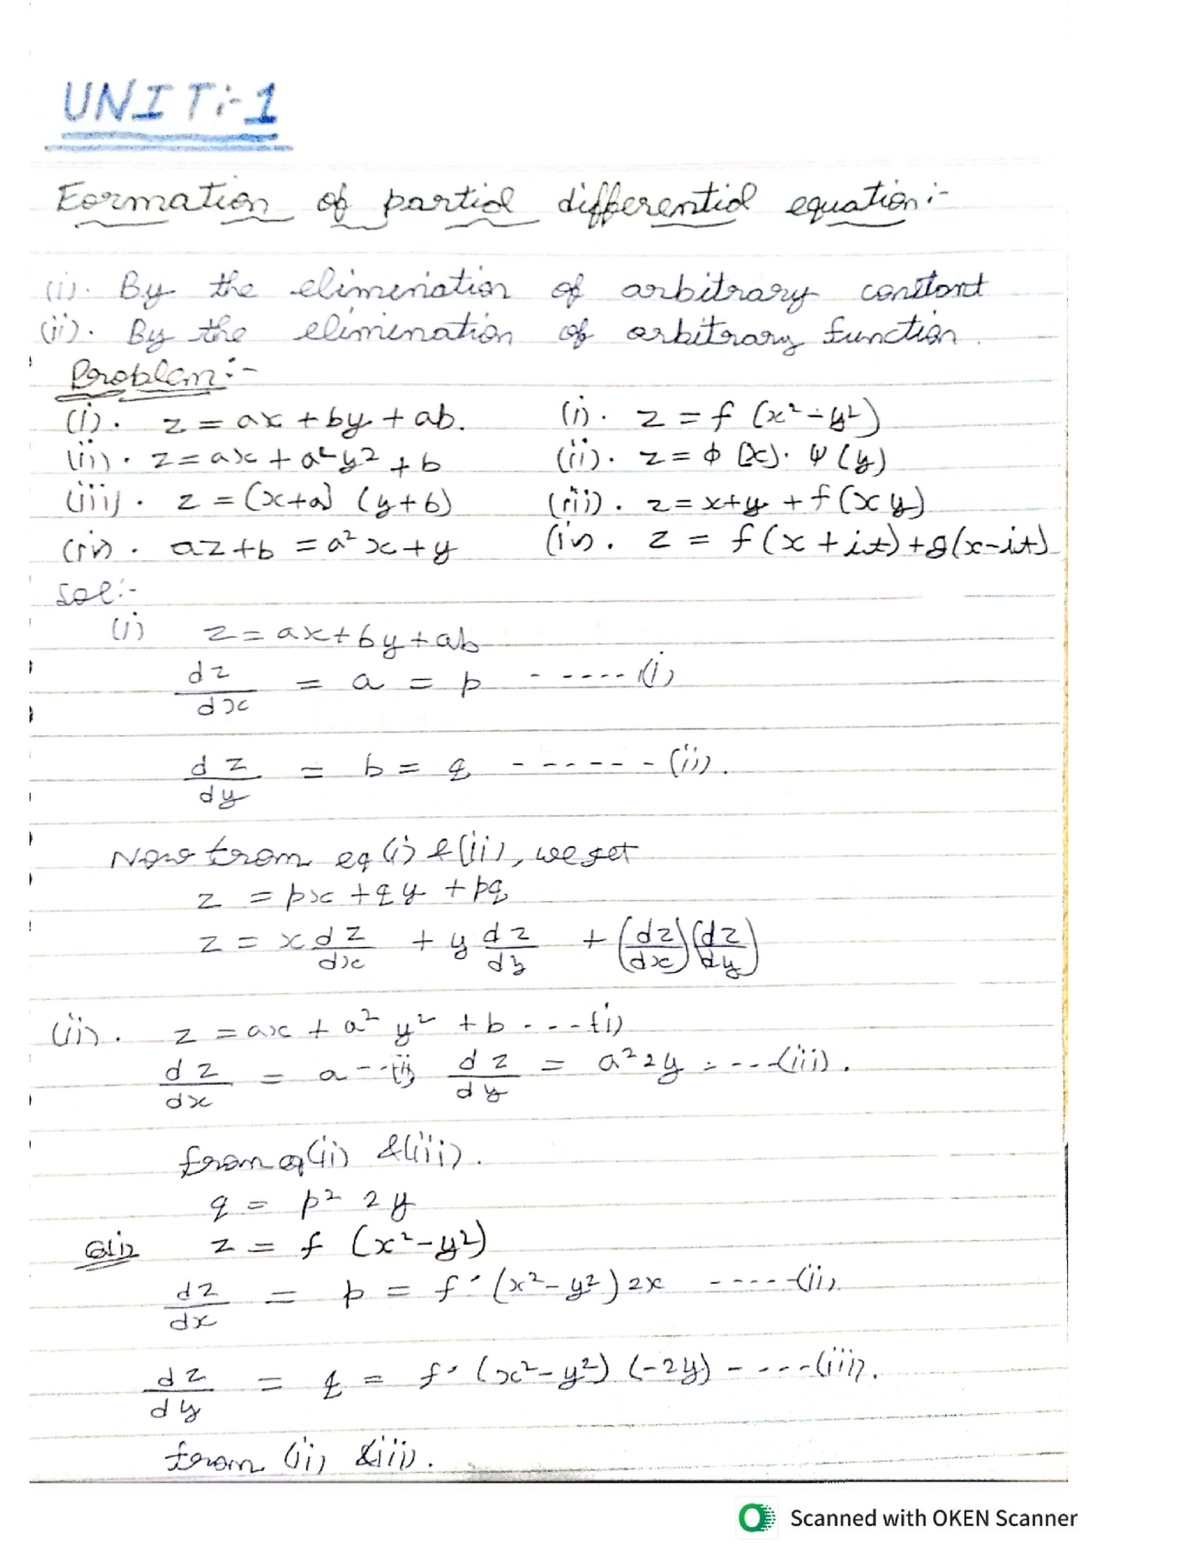 UNIT:-1
Formation of partial differential equation:-
(i). By the elimination of arbitrary constant
(ii). By the elimination of arbitrary function.
Problem:-
(i). z = ax + by + ab. (i). z = f (x² - y²)
(ii). z = ax + a²y² + b (ii). z = φ (x). ψ (y)
(iii). z = (x+a) (y+b) (iii). z = x+y + f(xy)
(iv). az+b = a²x+y (iv). z = f(x+it)+g(x-it)
Sol:-
(i) z = ax+by+ab
dz/dx = a = p - ---- (i)
dz/dy = b = q - - - - - - (ii).
Now from eq (i) & (ii), we get
z = px + qy + pq
z = x dz/dx + y dz/dy + (dz/dx)(dz/dy)
(ii). z = ax + a² y² + b - - - (i)
dz/dx = a --(ii) dz/dy = a²2y - --- (iii).
from eq (ii) & (iii).
q = p² 2y
z = f (x²-y²)
dz/dx = p = f' (x²-y²) 2x - ---- (ii).
dz/dy = q = f' (x²-y²) (-2y) - - - - (iii).
from (ii) & (iii).
Scanned with OKEN Scanner